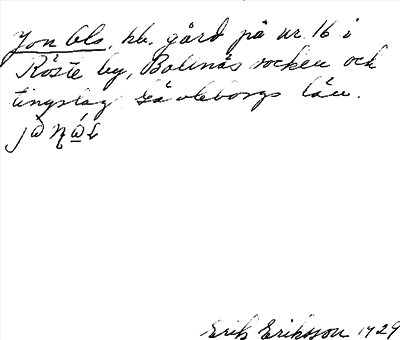 Jon Ols, hb. gård på nr. 16 i
Röste by, Bollnäs socken och
tingslag Gävleborgs län.
Erik Eriksson 1929